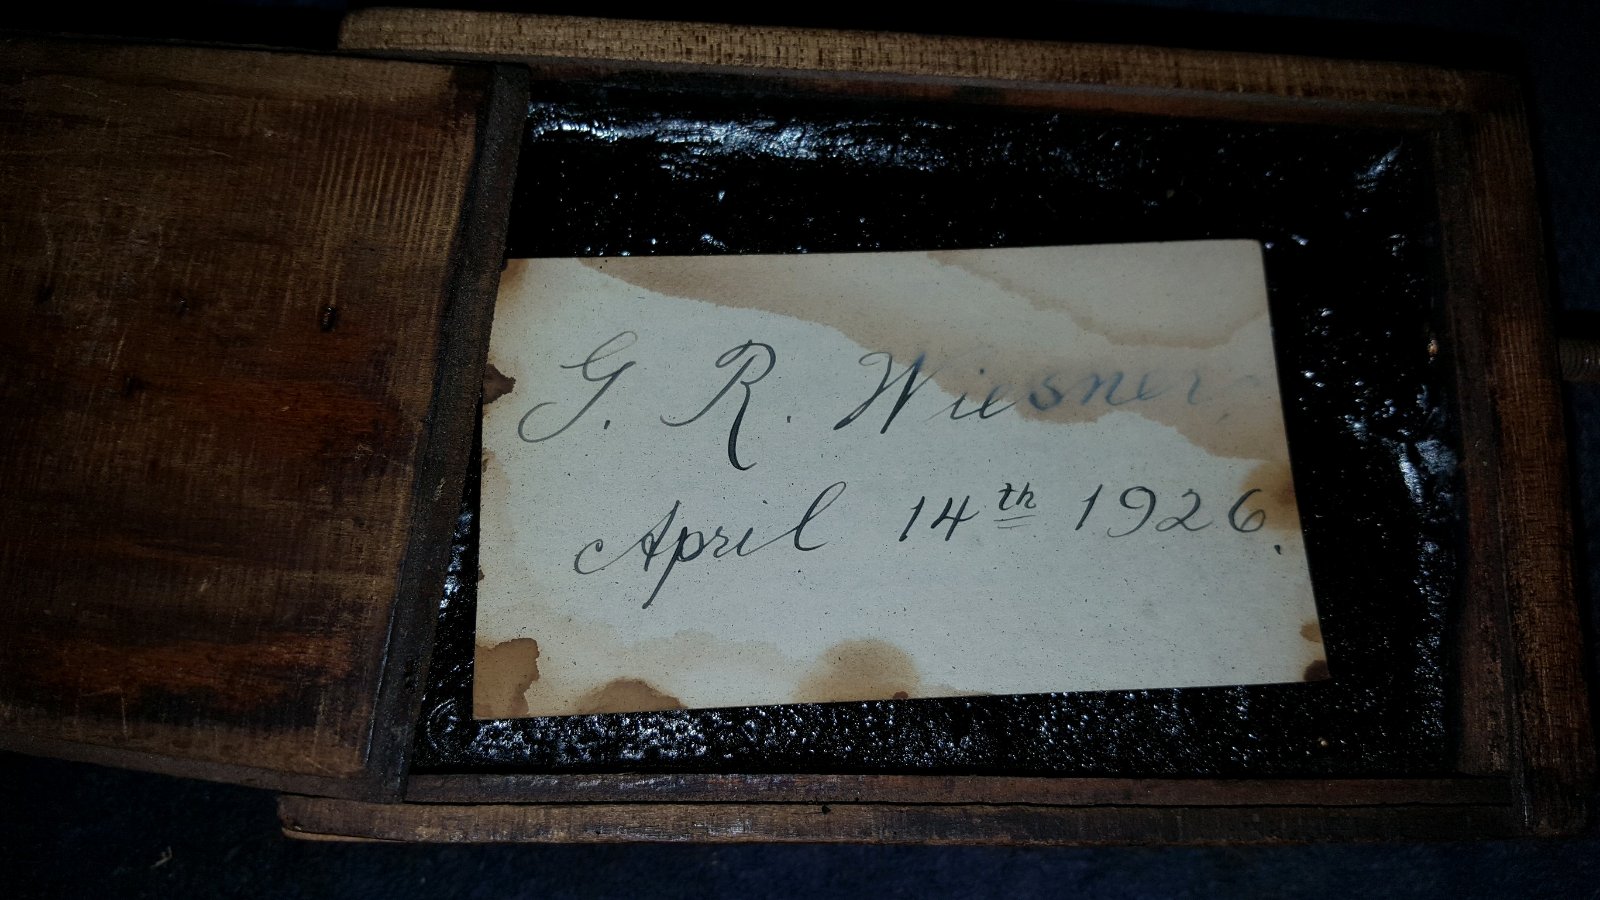 G. R. Wiesner,
April 14th 1926.